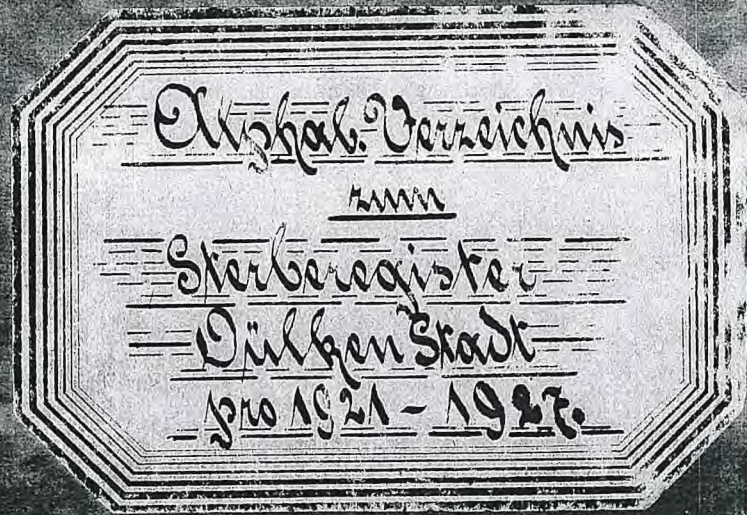 Alphab. Verzeichnis
zum
Sterberegister
Dülken Stadt
pro 1921 - 1927.